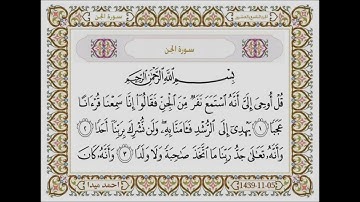 سورة الجن
سورة الجن
بِسْمِ اللَّهِ الرَّحْمَٰنِ الرَّحِيمِ
قُلْ أُوحِيَ إِلَيَّ أَنَّهُ اسْتَمَعَ نَفَرٌ مِّنَ الْجِنِّ فَقَالُوا إِنَّا سَمِعْنَا قُرْءَانًا
عَجَبًا ١ يَهْدِي إِلَى الرُّشْدِ فَـَٔامَنَّا بِهِ وَلَن نُّشْرِكَ بِرَبِّنَا أَحَدًا ٢
وَأَنَّهُ تَعَالَىٰ جَدُّ رَبِّنَا مَا اتَّخَذَ صَاحِبَةً وَلَا وَلَدًا ٣ وَأَنَّهُ كَانَ
1439-11-05
احمد ميدا